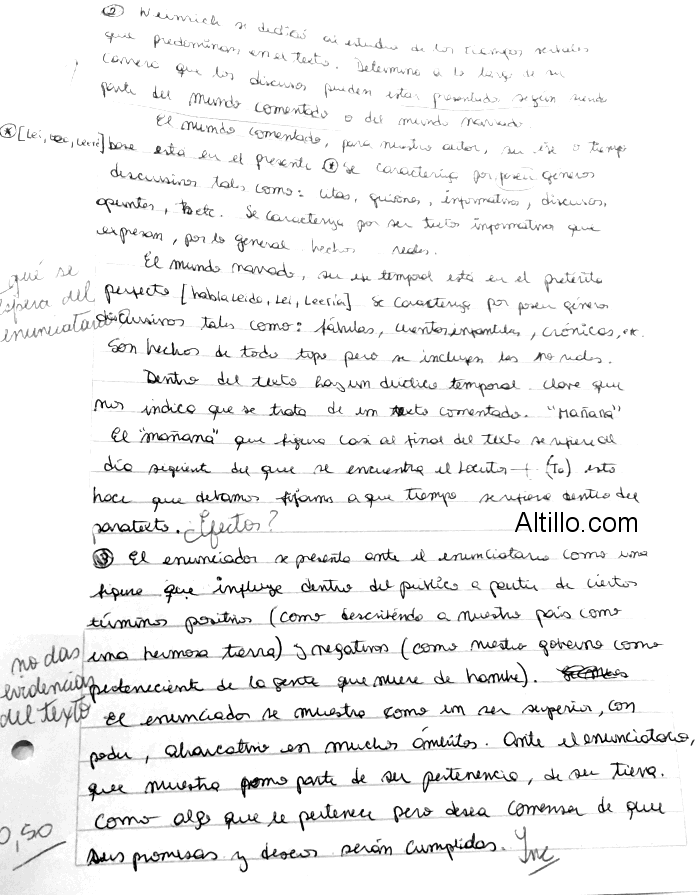 ② Weinrich se dedicó al estudio de los tiempos verbales
que predominan en el texto. Determinó a lo largo de su
carrera que los discursos pueden estar presentado según siendo
parte del mundo comentado o del mundo narrado.
El mundo comentado, para nuestro autor, su eje o tiempo
* [Leí, Leeré] base está en el presente * se caracteriza por poseer géneros
discursivos tales como: citas, guiones, informativos, discursos,
apuntes, etc. Se caracteriza por ser textos informativos que
expresan, por lo general hechos reales.
El mundo narrado, su eje temporal está en el pretérito
perfecto [había leído, Leí, Leería] se caracteriza por poseer géneros
discursivos tales como: fábulas, cuentos infantiles, crónicas, etc.
Son hechos de todo tipo pero se incluyen los no reales.
qué se
espera del
enunciatario
Dentro del texto hay un deíctico temporal clave que
nos indica que se trata de un texto comentado. "Mañana"
El "mañana" que figura casi al final del texto se refiere al
día siguiente del que se encuentra el Locutor + (To) esto
hace que debamos fijarnos a que tiempo se refiere dentro del
paratexto. ¿Efectos?
Altillo.com
③ El enunciador se presenta ante el enunciatario como una
figura que influye dentro del publico a partir de ciertos
términos positivos (como describiendo a nuestro país como
una hermosa tierra) y negativos (como nuestro gobierno como
perteneciente de la gente que muere de hambre).
no das
evidencias
del texto
El enunciador se muestra como un ser superior, con
poder, abarcativo en muchos ámbitos. Ante el enunciatario,
que muestra como parte de su pertenencia, de su tierra.
Como algo que le pertenece pero desea comensar de que
sus promesas y deseos serán cumplidas. Inc
0,50